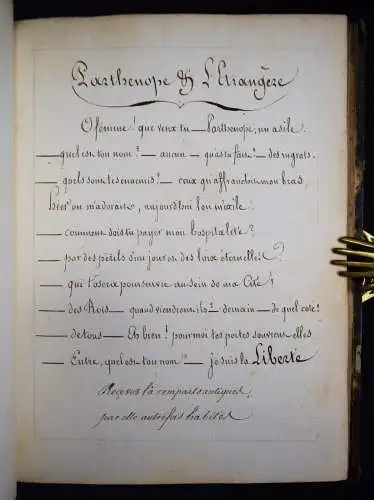 Parthenope & L'Etrangère
O femme! que veux tu — Parthenope, un asile.
— quel est ton nom? — aucun — qu'as tu fait? — des ingrats.
— quels sont tes ennemis? — ceux qu'affranchit mon bras,
hier on m'adorait, aujourd'hui l'on m'exile.
— comment dois tu payer mon hospitalité?
— par des périls d'un jour et des loix éternelles.
— qui t'osera poursuivre au sein de ma Cité?
— des Rois — quand viendront ils? — demain — de quel coté?
— de tous — Eh bien! pour moi tes portes s'ouvrent elles
— Entre, quel est ton nom? — je suis la Liberté
Recevez la remparts antiques,
par elle autrefois habités